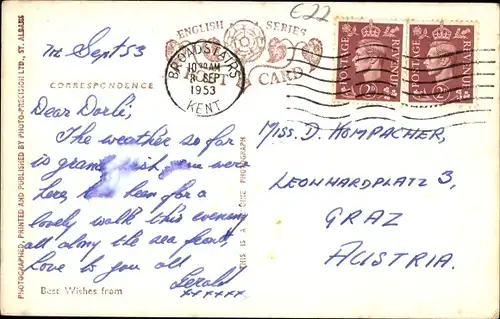 £22
7th Sept 53
ENGLISH SERIES
POST CARD
BROADSTAIRS
8 SEPT
1953
KENT
POSTAGE REVENUE
2D
POSTAGE REVENUE
2D
CORRESPONDENCE
Dear Dorli,
The weather so far
is grand, wish you were
here, have been for a
lovely walk this evening
all along the sea front,
Love to you all
Gerald
xxxxxx
Best Wishes from
PHOTOGRAPHED, PRINTED AND PUBLISHED BY PHOTO-PRECISION LTD., ST. ALBANS
THIS IS A PHOTOGRAPH
MISS. D. KOMPACHER,
LEONHARDPLATZ 3,
GRAZ
AUSTRIA.